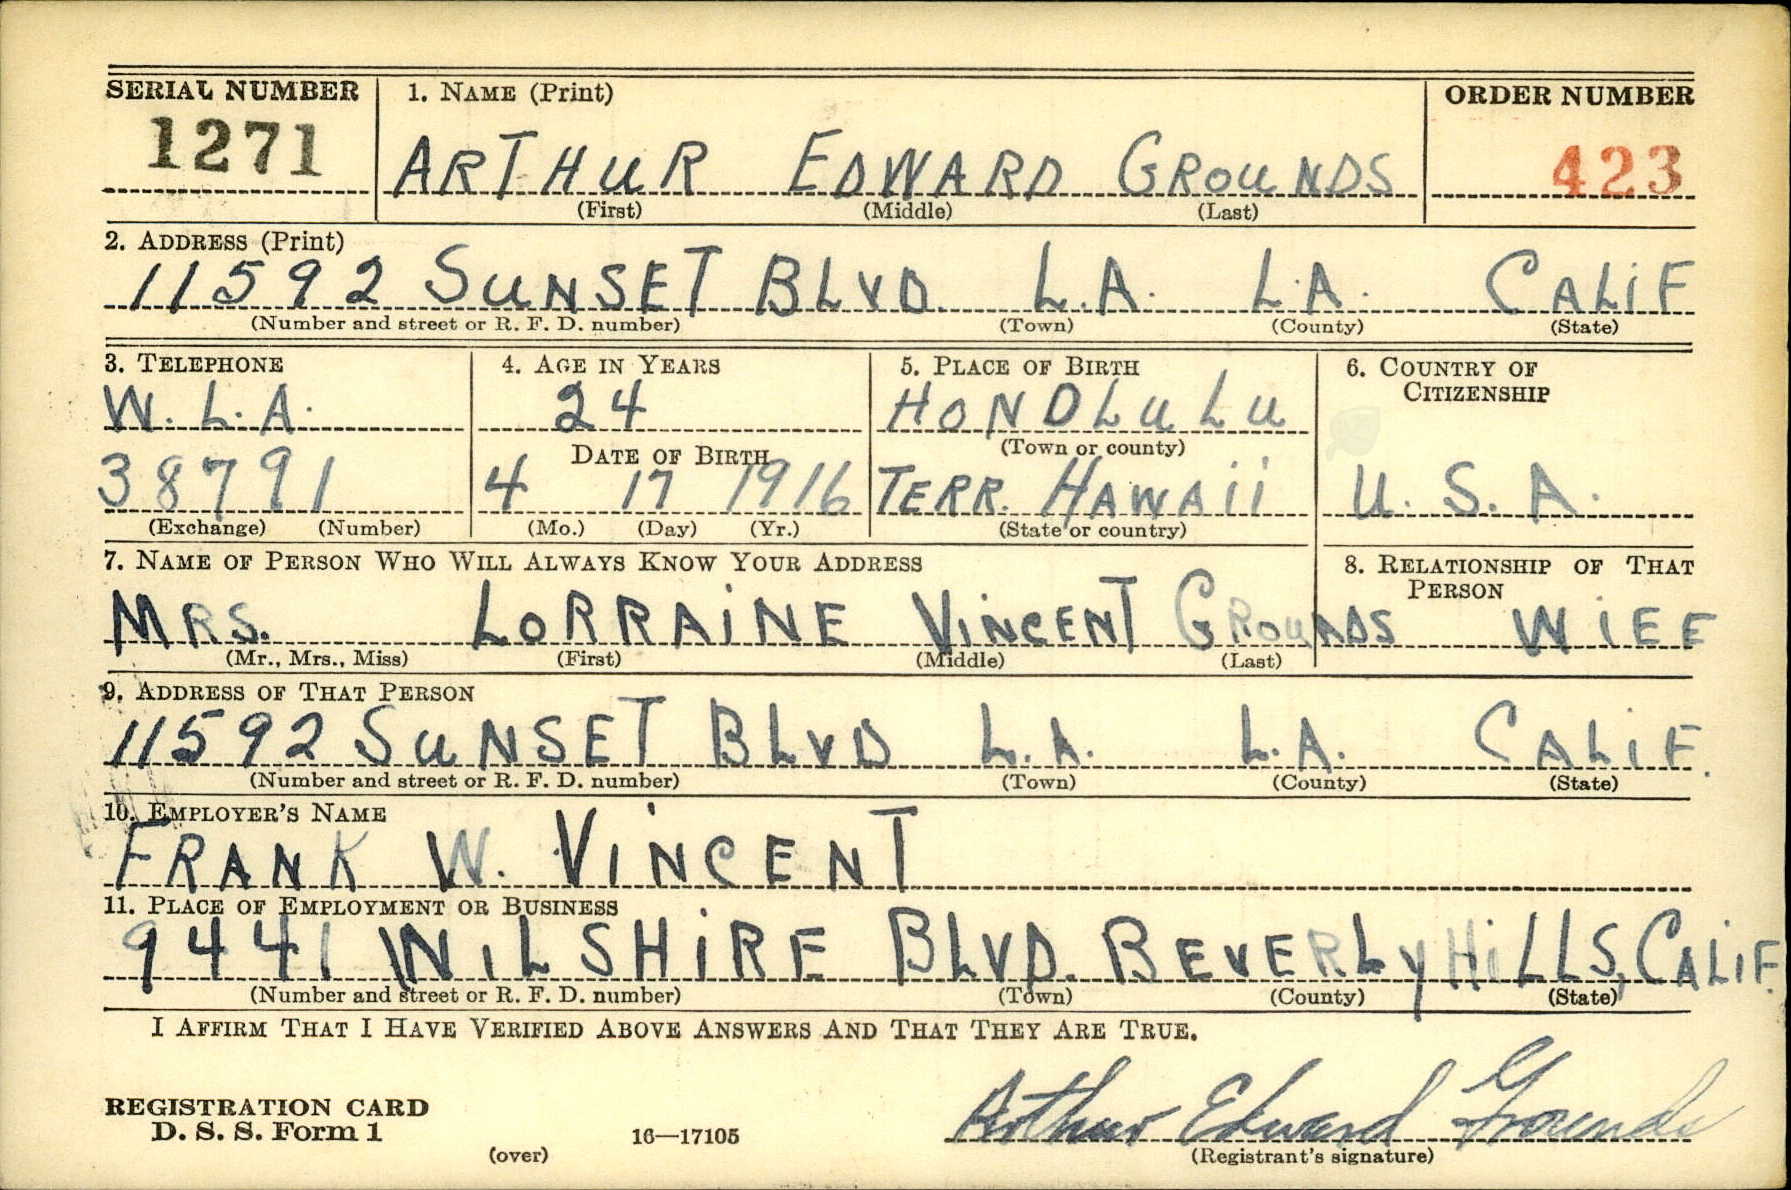 SERIAL NUMBER 1. NAME (Print) ORDER NUMBER
1271 ARTHUR EDWARD GROUNDS 423
(First) (Middle) (Last)
2. ADDRESS (Print)
11592 SUNSET BLVD. L.A. L.A. CALIF
(Number and street or R. F. D. number) (Town) (County) (State)
3. TELEPHONE 4. AGE IN YEARS 5. PLACE OF BIRTH 6. COUNTRY OF
CITIZENSHIP
W. L. A. 24 HONOLULU
DATE OF BIRTH (Town or county)
38791 4 17 1916 TERR. HAWAII U. S. A.
(Exchange) (Number) (Mo.) (Day) (Yr.) (State or country)
7. NAME OF PERSON WHO WILL ALWAYS KNOW YOUR ADDRESS 8. RELATIONSHIP OF THAT
PERSON
MRS. LORRAINE VINCENT GROUNDS WIFE
(Mr., Mrs., Miss) (First) (Middle) (Last)
9. ADDRESS OF THAT PERSON
11592 SUNSET BLVD L.A. L.A. CALIF.
(Number and street or R. F. D. number) (Town) (County) (State)
10. EMPLOYER'S NAME
FRANK W. VINCENT
11. PLACE OF EMPLOYMENT OR BUSINESS
9441 WILSHIRE BLVD. BEVERLY HILLS, CALIF.
(Number and street or R. F. D. number) (Town) (County) (State)
I AFFIRM THAT I HAVE VERIFIED ABOVE ANSWERS AND THAT THEY ARE TRUE.
REGISTRATION CARD
D. S. S. Form 1 Arthur Edward Grounds
(over) 16—17105 (Registrant's signature)